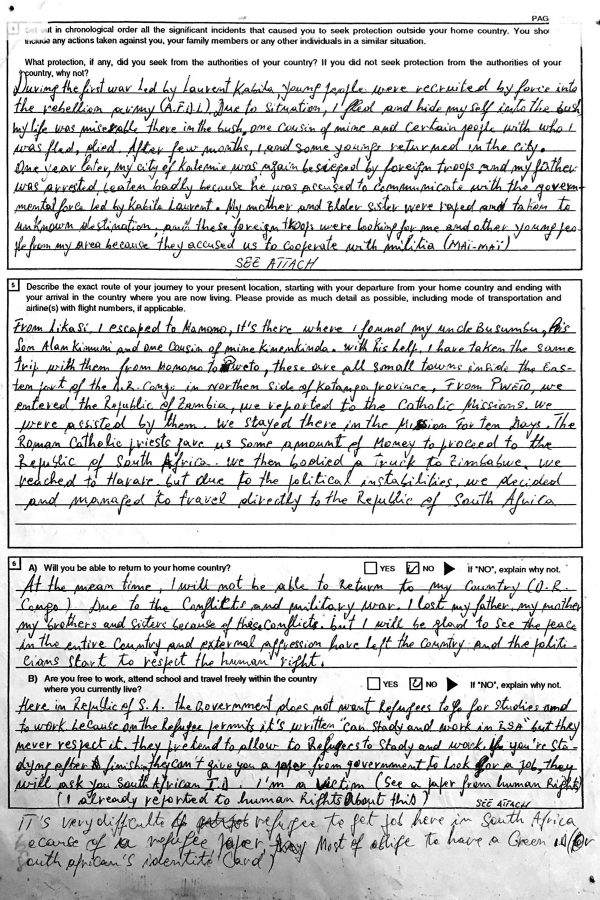 PAG
4 Set out in chronological order all the significant incidents that caused you to seek protection outside your home country. You shou
include any actions taken against you, your family members or any other individuals in a similar situation.
What protection, if any, did you seek from the authorities of your country? If you did not seek protection from the authorities of your
country, why not?
During the first war led by Laurent Kabila, young people were recruited by force into
the rebellion army (A.F.D.L). Due to situation, I fled and hide my self into the bush
my life was miserable there in the bush, one cousin of mine and certain people with who I
was fled, died. After few months, I and some youngs returned in the city.
One year later, my city of Kalemie was again besieged by foreign troops and my father
was arrested, beaten badly because he was accused to communicate with the govern-
mental force led by Kabila Laurent. My mother and Elder sister were raped and taken to
unknown destination, and these foreign troops were looking for me and other young peo
ple from my area because they accused us to cooperate with militia (MAI-MAI)
SEE ATTACH
5 Describe the exact route of your journey to your present location, starting with your departure from your home country and ending with
your arrival in the country where you are now living. Please provide as much detail as possible, including mode of transportation and
airline(s) with flight numbers, if applicable.
From Likasi, I escaped to Momomo, it's there where I found my uncle Busumbu, his
Son Alan Kimuni and one cousin of mine Kinenkinda. with his help, I have taken the same
Trip with them from Momomo to Pweto, these are all small towns inside the Eas-
tern part of the D.R. Congo in northern side of Katanga province, From PWETO, we
entered the Republic of Zambia, we reported to the Catholic Missions. we
were assisted by them. we stayed there in the Mission For ten Days. The
Roman Catholic priests gave us some amount of Money to proceed to the
Republic of South Africa. we then bodied a Truck to Zimbabwe. we
reached to Harare. but due to the political instabilities, we decided
and managed to travel directly to the Republic of South Africa
6 A) Will you be able to return to your home country? YES NO If "NO", explain why not.
At the mean time, I will not be able to Return to my Country (D.R.
Congo). Due to the Conflicts and military war. I lost my father, my mother
my brothers and sisters because of these conflicts. but I will be glad to see the peace
in the entire Country and external aggression have left the Country and the politi-
cians start to respect the human right.
B) Are you free to work, attend school and travel freely within the country YES NO If "NO", explain why not.
where you currently live?
Here in Republic of S.A. the Government does not want Refugees to go for studies and
to work because on the Refugee permits it's written "can study and work in RSA" but they
never respect it. they pretend to allow to Refugees to Study and work. if you're stu-
dying after finishing they can't give you a paper from government to look for a job, they
will ask you South African I.D. I'm a victim (see a paper from human Rights)
(I already reported to human Rights about this) SEE ATTACH
IT's very difficulte refugee to get job here in South Africa
because of a refugee paper, Most of all to have a Green ID (or
South african's identite Card)